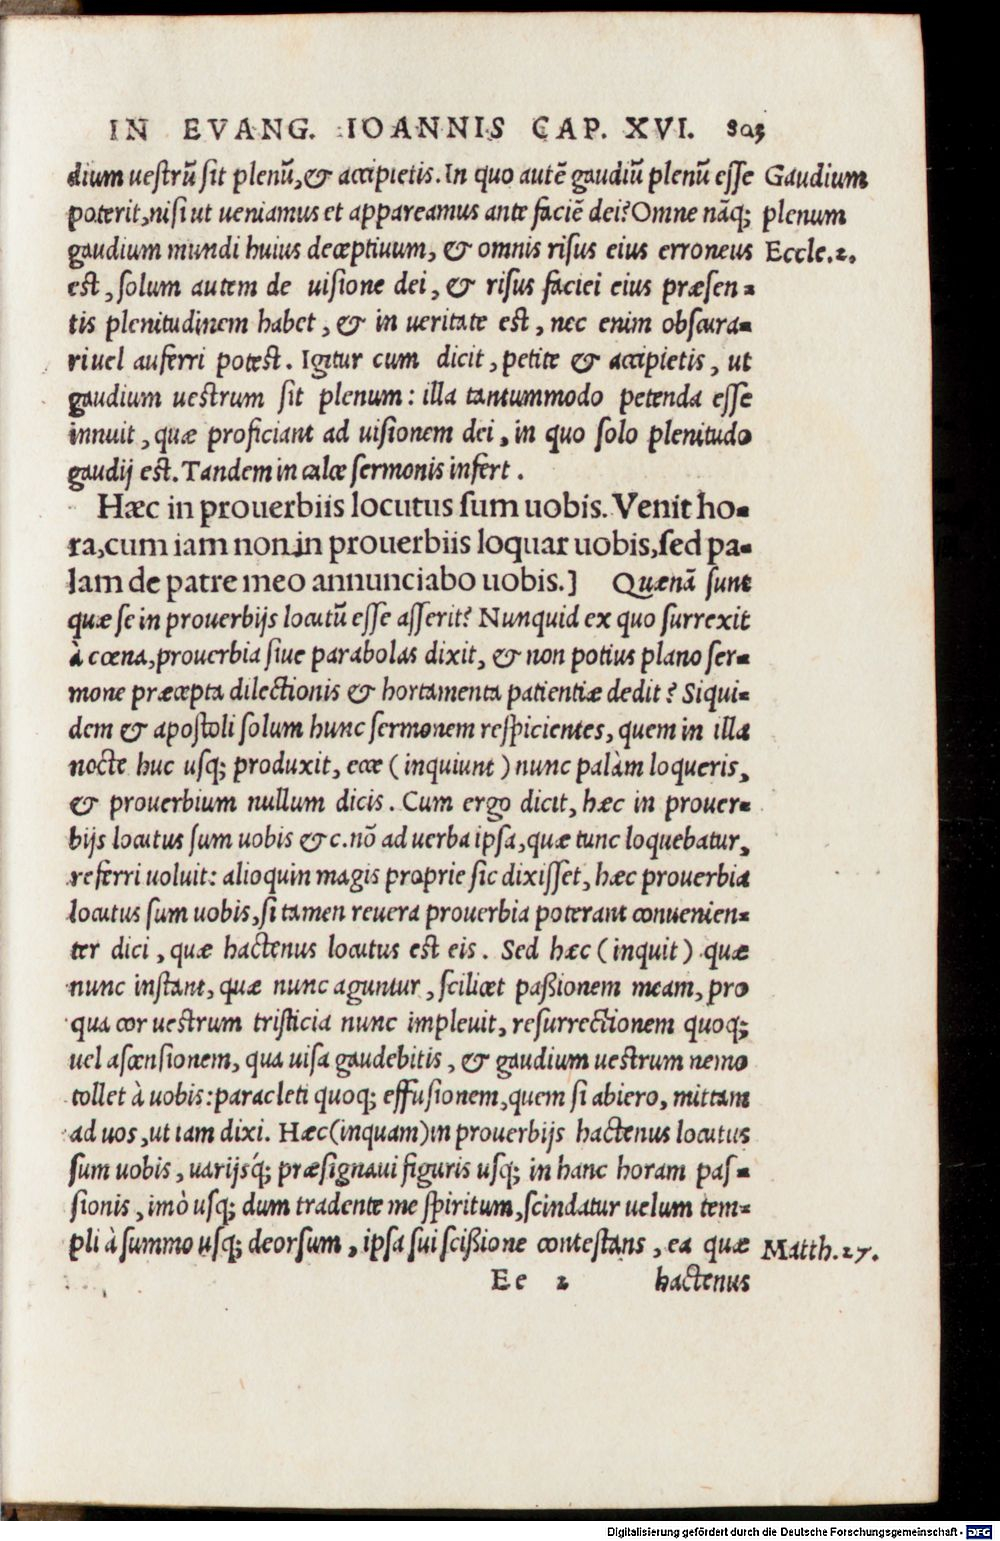 IN EVANG. IOANNIS CAP. XVI. 803
dium uestrũ sit plenũ, & accipietis. In quo autẽ gaudiũ plenũ esse Gaudium
poterit, nisi ut ueniamus et appareamus ante faciẽ dei? Omne nãq; plenum
gaudium mundi huius deceptiuum, & omnis risus eius erroneus Eccle. 2.
est, solum autem de uisione dei, & risus faciei eius præsen-
tis plenitudinem habet, & in ueritate est, nec enim obscura-
ri uel auferri potest. Igitur cum dicit, petite & accipietis, ut
gaudium uestrum sit plenum: illa tantummodo petenda esse
innuit, quæ proficiant ad uisionem dei, in quo solo plenitudo
gaudij est. Tandem in calce sermonis infert.
Hæc in prouerbiis locutus sum uobis. Venit ho-
ra, cum iam non in prouerbiis loquar uobis, sed pa-
lam de patre meo annunciabo uobis.] Quænã sunt
quæ se in prouerbijs locutũ esse asserit? Nunquid ex quo surrexit
à cœna, prouerbia siue parabolas dixit, & non potius plano ser-
mone præcepta dilectionis & hortamenta patientiæ dedit? Siqui-
dem & apostoli solum hunc sermonem respicientes, quem in illa
nocte huc usq; produxit, ecce (inquiunt) nunc palàm loqueris,
& prouerbium nullum dicis. Cum ergo dicit, hæc in prouer-
bijs locutus sum uobis &c. nõ ad uerba ipsa, quæ tunc loquebatur,
referri uoluit: alioquin magis proprie sic dixisset, hæc prouerbia
locutus sum uobis, si tamen reuera prouerbia poterant conuenien-
ter dici, quæ hactenus locutus est eis. Sed hæc (inquit) quæ
nunc instant, quæ nunc aguntur, scilicet paßionem meam, pro
qua cor uestrum tristicia nunc impleuit, resurrectionem quoq;
uel ascensionem, qua uisa gaudebitis, & gaudium uestrum nemo
tollet à uobis: paracleti quoq; effusionem, quem si abiero, mittam
ad uos, ut iam dixi. Hæc (inquam) in prouerbijs hactenus locutus
sum uobis, uarijsq́; præsignaui figuris usq; in hanc horam pas-
sionis, imò usq; dum tradente me spiritum, scindatur uelum tem-
pli à summo usq; deorsum, ipsa sui scißione contestans, ea quæ Matth. 27.
Ee 2 hactenus
Digitalisierung gefördert durch die Deutsche Forschungsgemeinschaft - DFG